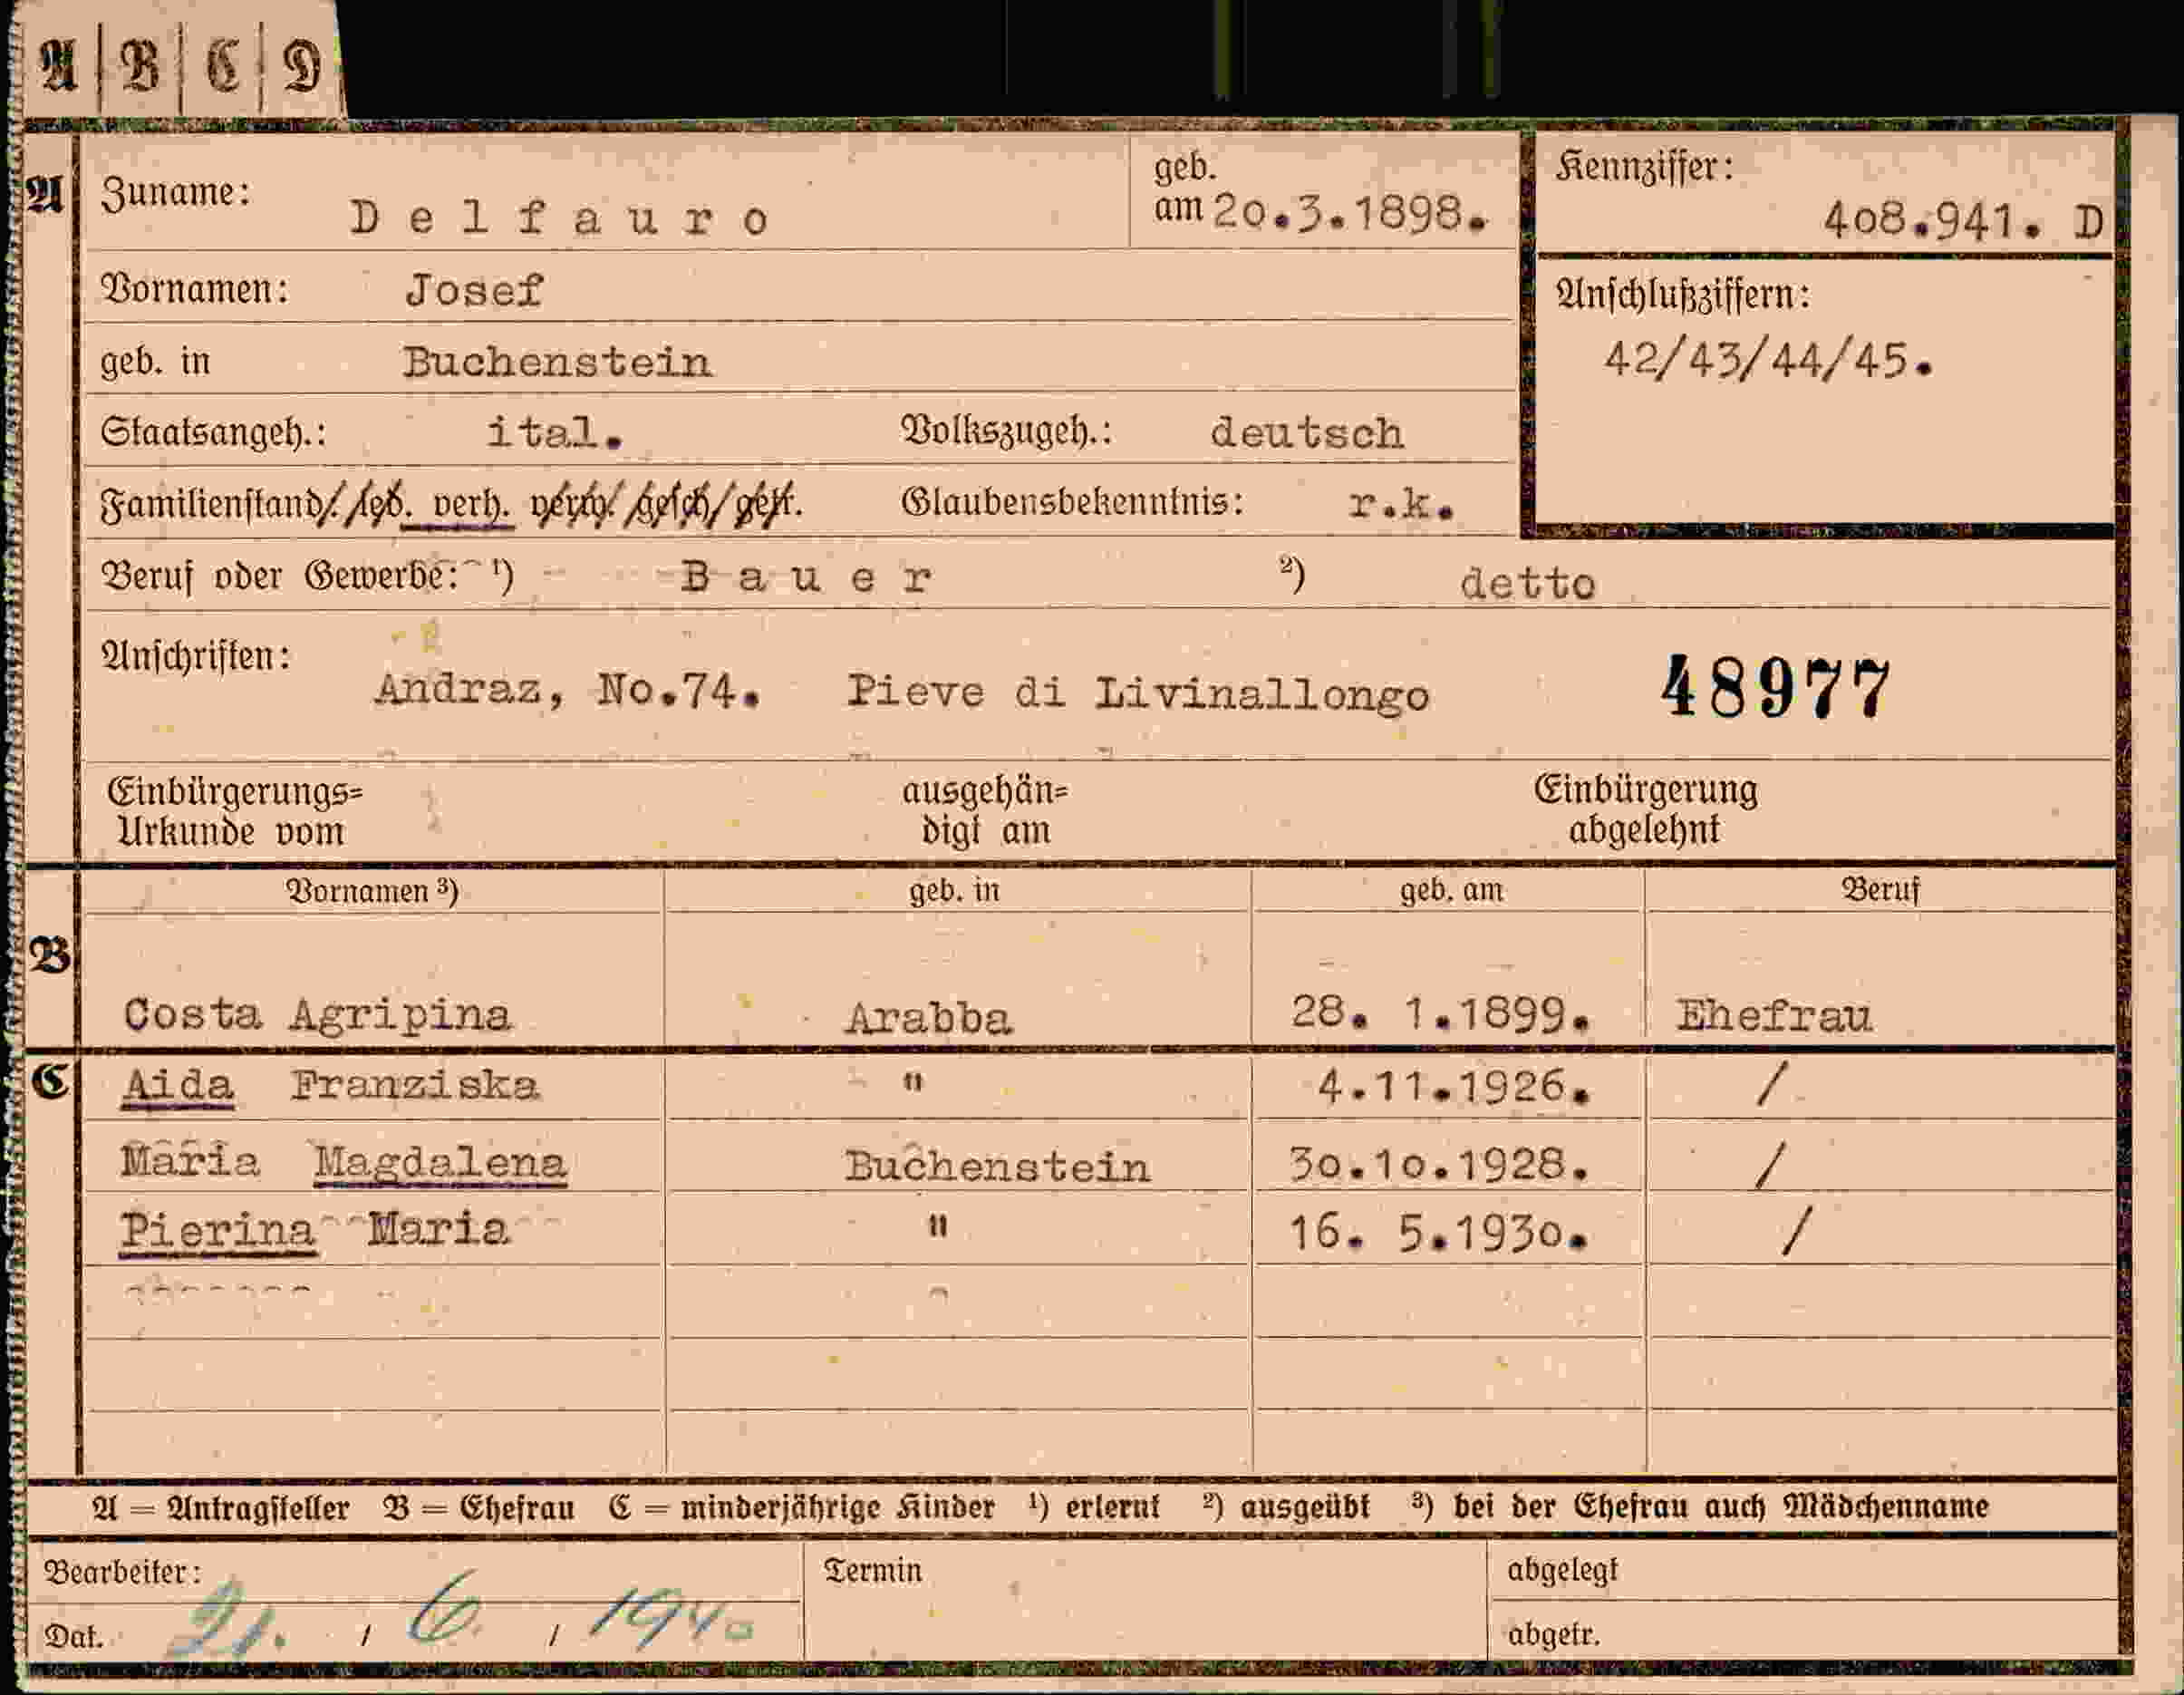 A | B | C | D
A Zuname: Delfauro geb. am 20.3.1898. Kennziffer: 408.941. D
Vornamen: Josef Anschlußziffern:
geb. in Buchenstein 42/43/44/45.
Staatsangeh.: ital. Volkszugeh.: deutsch
Familienstand/. led. verh. verw. gesch/ getr. Glaubensbekenntnis: r.k.
Beruf oder Gewerbe: ¹) Bauer ²) detto
Anschriften: Andraz, No.74. Pieve di Livinallongo 48977
Einbürgerungs= ausgehän= Einbürgerung
Urkunde vom digt am abgelehnt
Vornamen ³) geb. in geb. am Beruf
B
Costa Agripina Arabba 28. 1.1899. Ehefrau
C Aida Franziska " 4.11.1926. /
Maria Magdalena Buchenstein 30.10.1928. /
Pierina Maria " 16. 5.1930. /
A = Antragsteller B = Ehefrau C = minderjährige Kinder ¹) erlernt ²) ausgeübt ³) bei der Ehefrau auch Mädchenname
Bearbeiter: Termin abgelegt
Dat. 21. / 6. / 1940 abgetr.